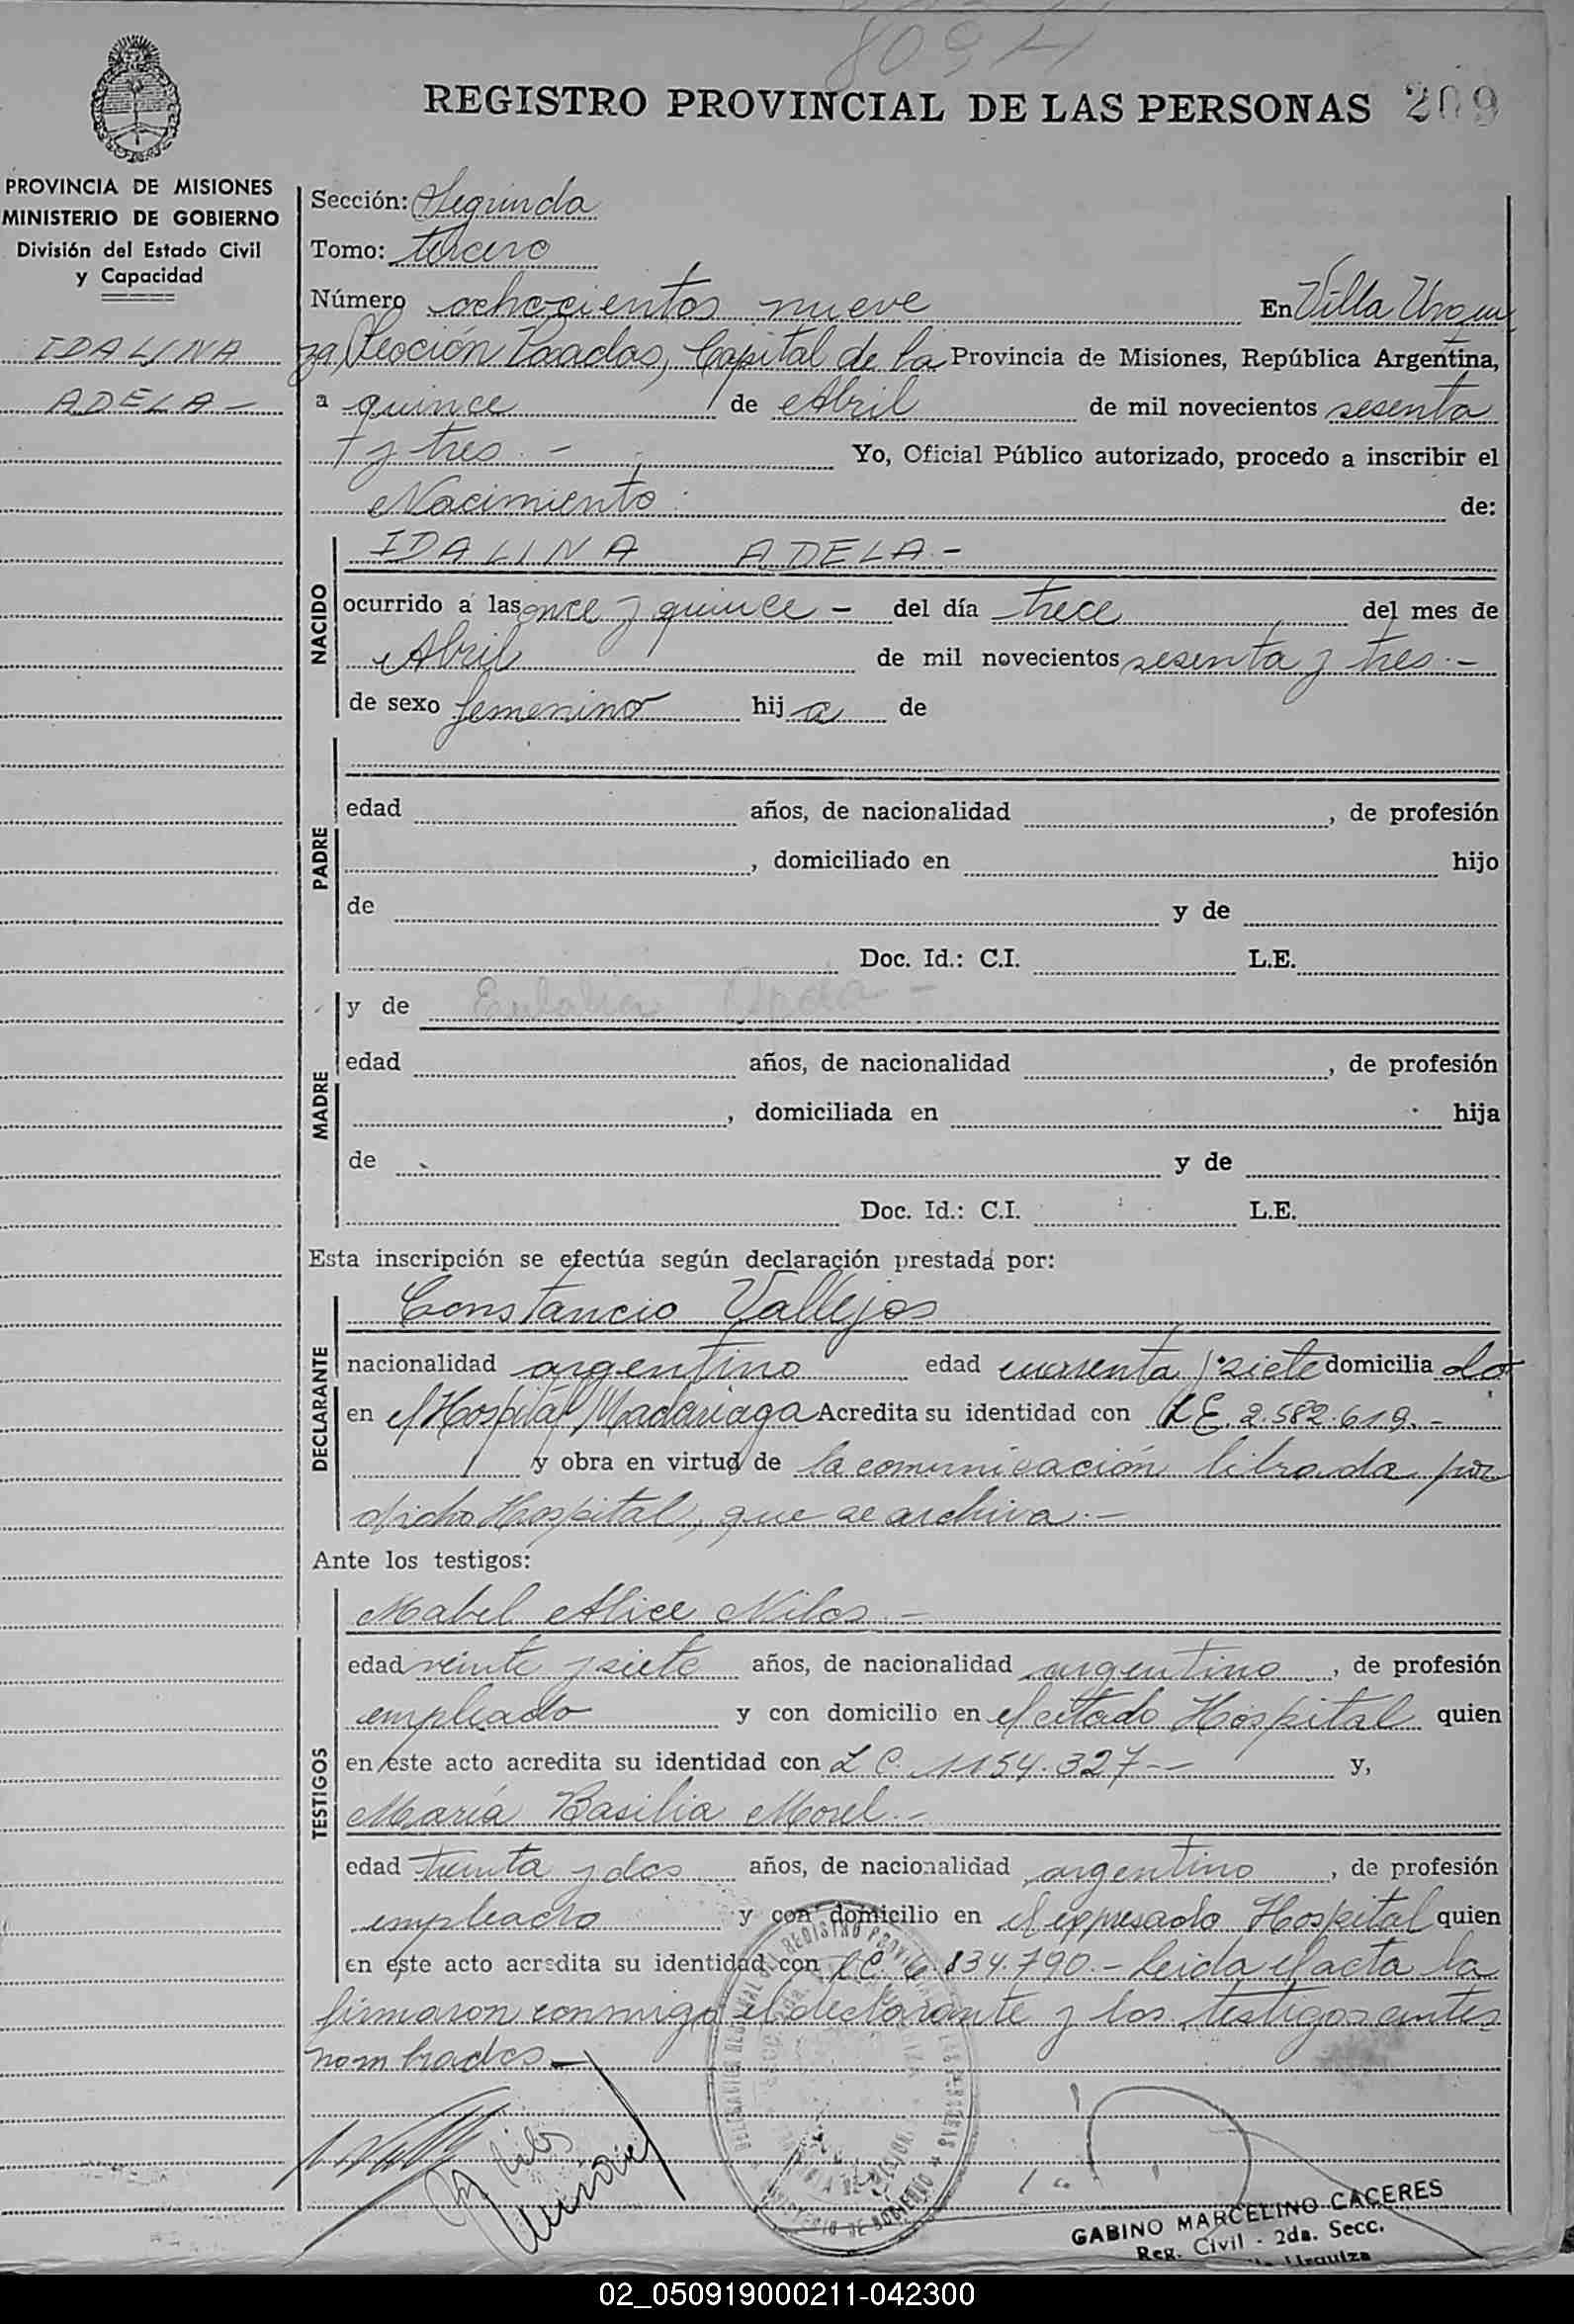 REGISTRO PROVINCIAL DE LAS PERSONAS 209
PROVINCIA DE MISIONES
MINISTERIO DE GOBIERNO
División del Estado Civil
y Capacidad
IDALINA
ADELA -
Sección: Segunda
Tomo: tercero
Número ochocientos nueve En Villa Urqui
za, Sección Posadas, Capital de la Provincia de Misiones, República Argentina,
a quince de Abril de mil novecientos sesenta
y tres. - Yo, Oficial Público autorizado, procedo a inscribir el
Nacimiento de:
NACIDO
IDALINA ADELA -
ocurrido a las once y quince - del día trece del mes de
Abril de mil novecientos sesenta y tres. -
de sexo femenino hij a de
PADRE
edad años, de nacionalidad , de profesión
, domiciliado en hijo
de y de
Doc. Id.: C.I. L.E.
MADRE
y de Eulalia
edad años, de nacionalidad , de profesión
, domiciliada en hija
de y de
Doc. Id.: C.I. L.E.
Esta inscripción se efectúa según declaración prestada por:
DECLARANTE
Constancio Vallejos
nacionalidad argentino edad cuarenta y siete domicilia do
en el Hospital Madariaga Acredita su identidad con L.E. 2.582.619. -
y obra en virtud de la comunicación librada por
dicho Hospital, que se archiva. -
Ante los testigos:
TESTIGOS
Mabel Alice Milos -
edad veinte y siete años, de nacionalidad argentino , de profesión
empleado y con domicilio en el citado Hospital quien
en este acto acredita su identidad con L C. 1154.327 - - y,
María Basilia Morel. -
edad treinta y dos años, de nacionalidad argentino , de profesión
empleado y con domicilio en el expresado Hospital quien
en este acto acredita su identidad con L C. 6.834.790. - Leida el acta la
firmaron conmigo el declarante y los testigos antes
nombrados. -
GABINO MARCELINO CACERES
Reg. Civil - 2da. Secc.
Urquiza
02_050919000211-042300